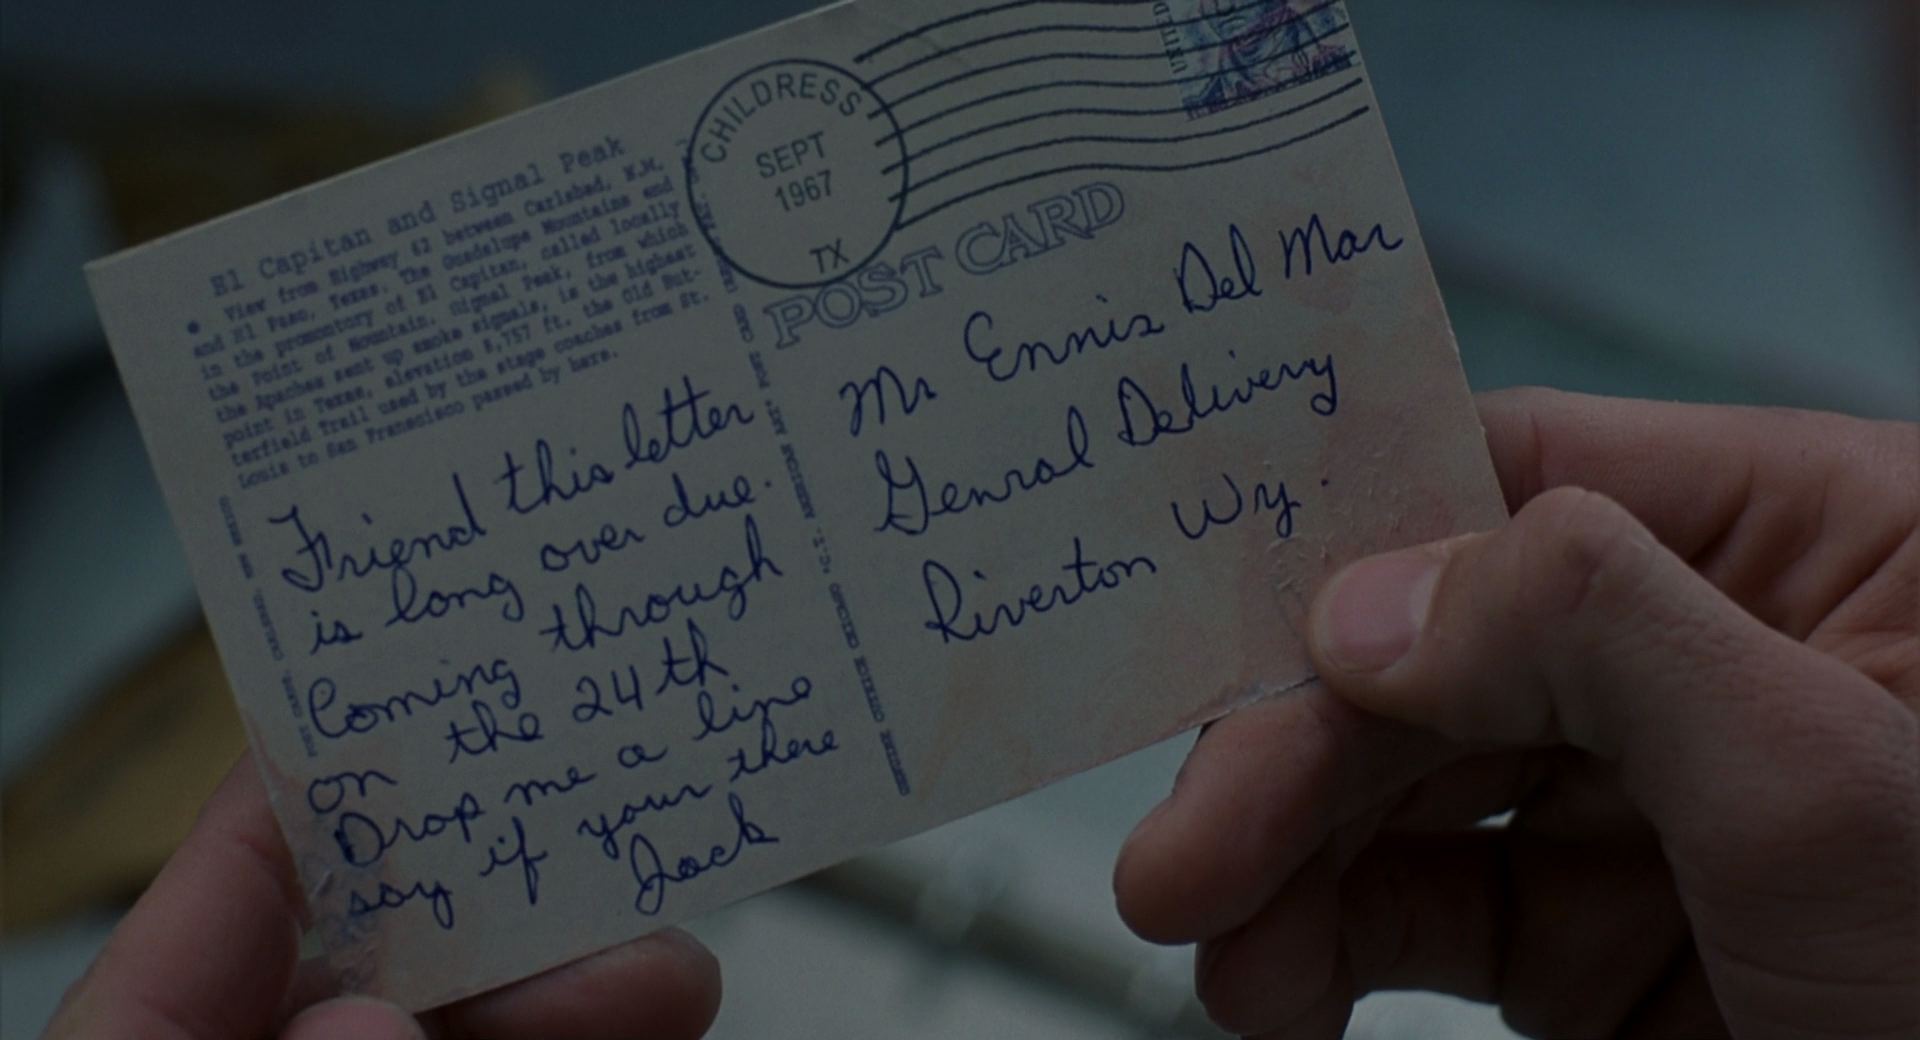 El Capitan and Signal Peak
● View from Highway 62 between Carlsbad, N.M.
and El Paso, Texas. The Guadelupe Mountains and
in the promontory of El Capitan, called locally
the Point of Mountain. Signal Peak, from which
the Apaches sent up smoke signals, is the highest
point in Texas, elevation 8,757 ft. the Old But-
terfield Trail used by the stage coaches from St.
Louis to San Franscisco passed by here.
Friend this letter
is long over due.
Coming through
on the 24th
Drop me a line
say if your there
Jack
CHILDRESS
SEPT
1967
TX
UNITED
POST CARD
Mr Ennis Del Mar
Genral Delivery
Riverton Wy.